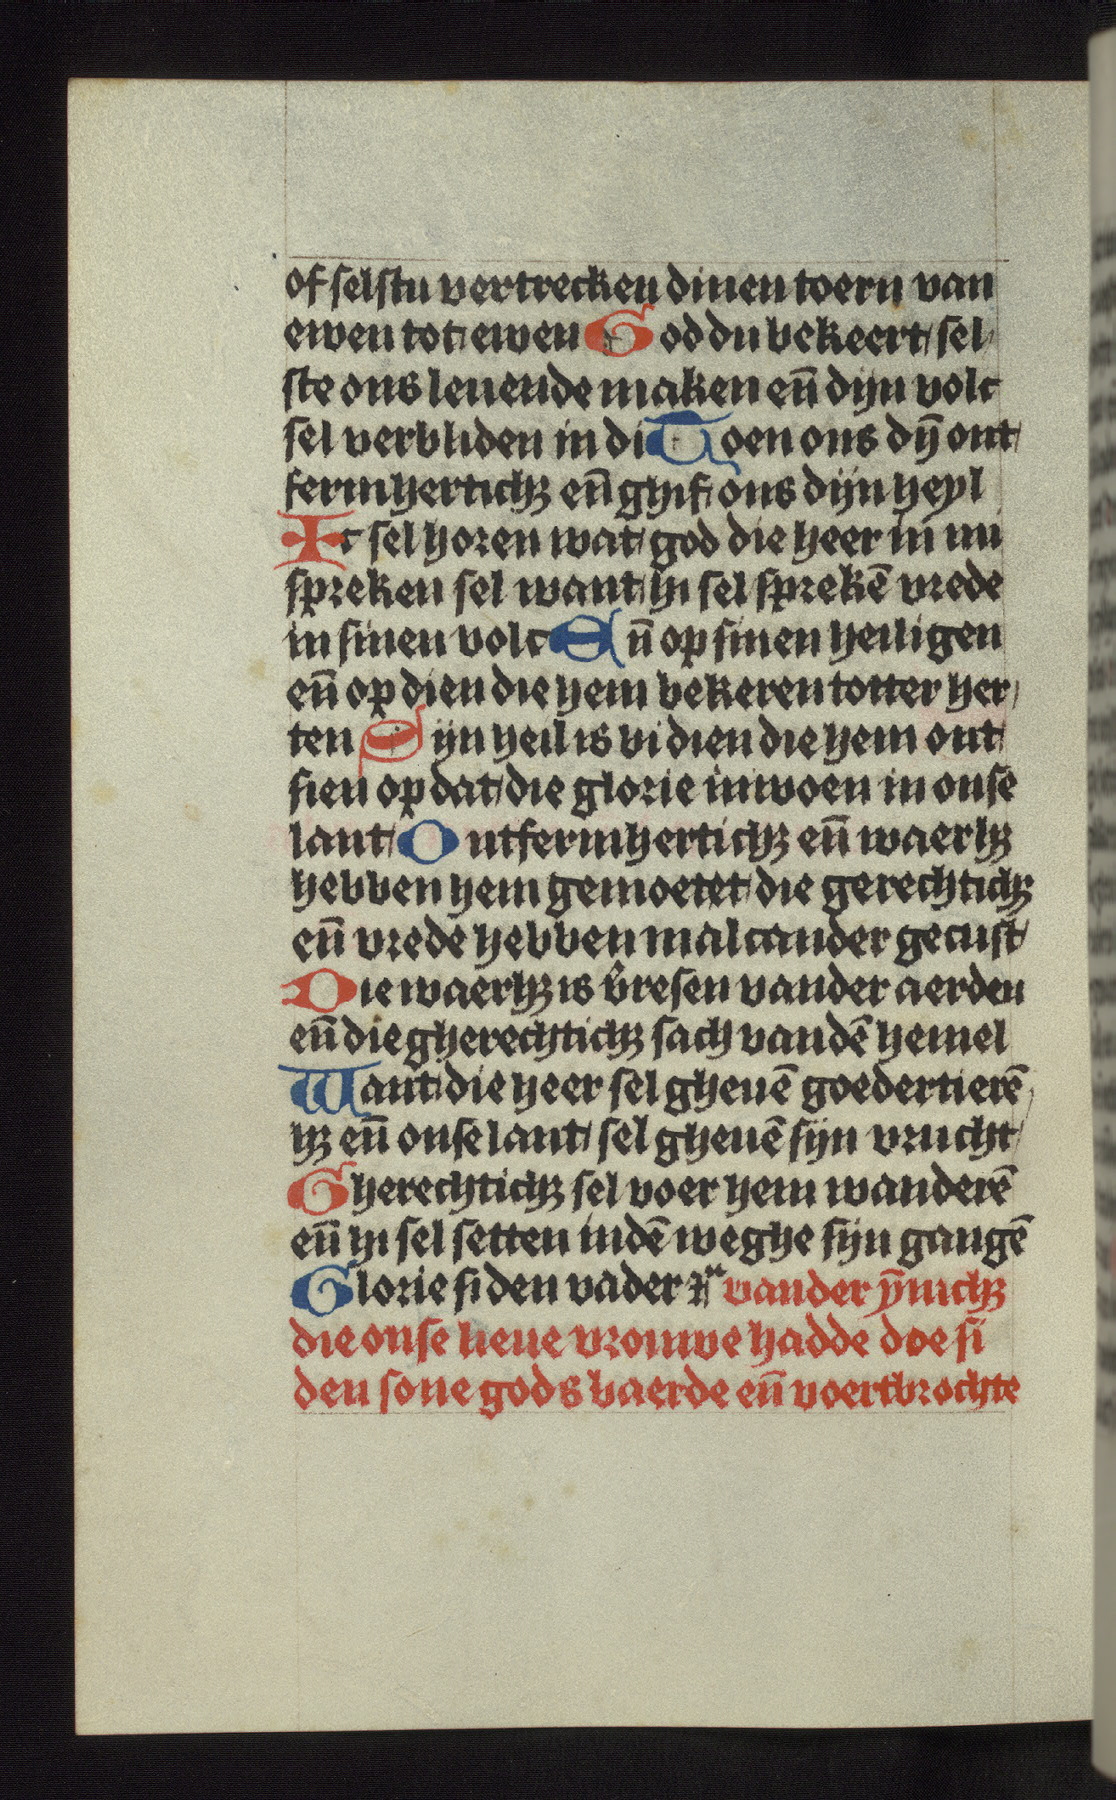 of selstu vertrecken dinen toern van
ewen tot ewen God du bekeert sel
ste ons leuende maken en̄ dijn volc
sel verbliden in di Toen ons dȳ ont
fermherticħꝫ en̄ ghif ons dijn heyl
Ic sel horen wat god die heer in mi
spreken sel want hi sel sprekē vrede
in sinen volc En̄ op sinen heiligen
en̄ op dien die hem bekeren totter her
ten Sijn heil is bi dien die hem ont
sien op dat die glorie inwoen in onse
lant Ontfermhertichꝫ en̄ waerhꝫ
hebben hem gemoetet die gerechtichꝫ
en̄ vrede hebben malcander gecust
Die waerhꝫ is v̄resen vander aerden
en̄ die gherechtichꝫ sach vandē hemel
Want die heer sel gheuē goedertierē
hꝫ en̄ onse lant sel gheuē sijn vrucht
Gherechtichꝫ sel voer hem wanderē
en̄ hi sel setten indē weghe sijn gangē
Glorie si den vader ꝛͣ vander ȳnichꝫ
die onse lieue vrouwe hadde doe si
den sone gods baerde en̄ voertbrochte